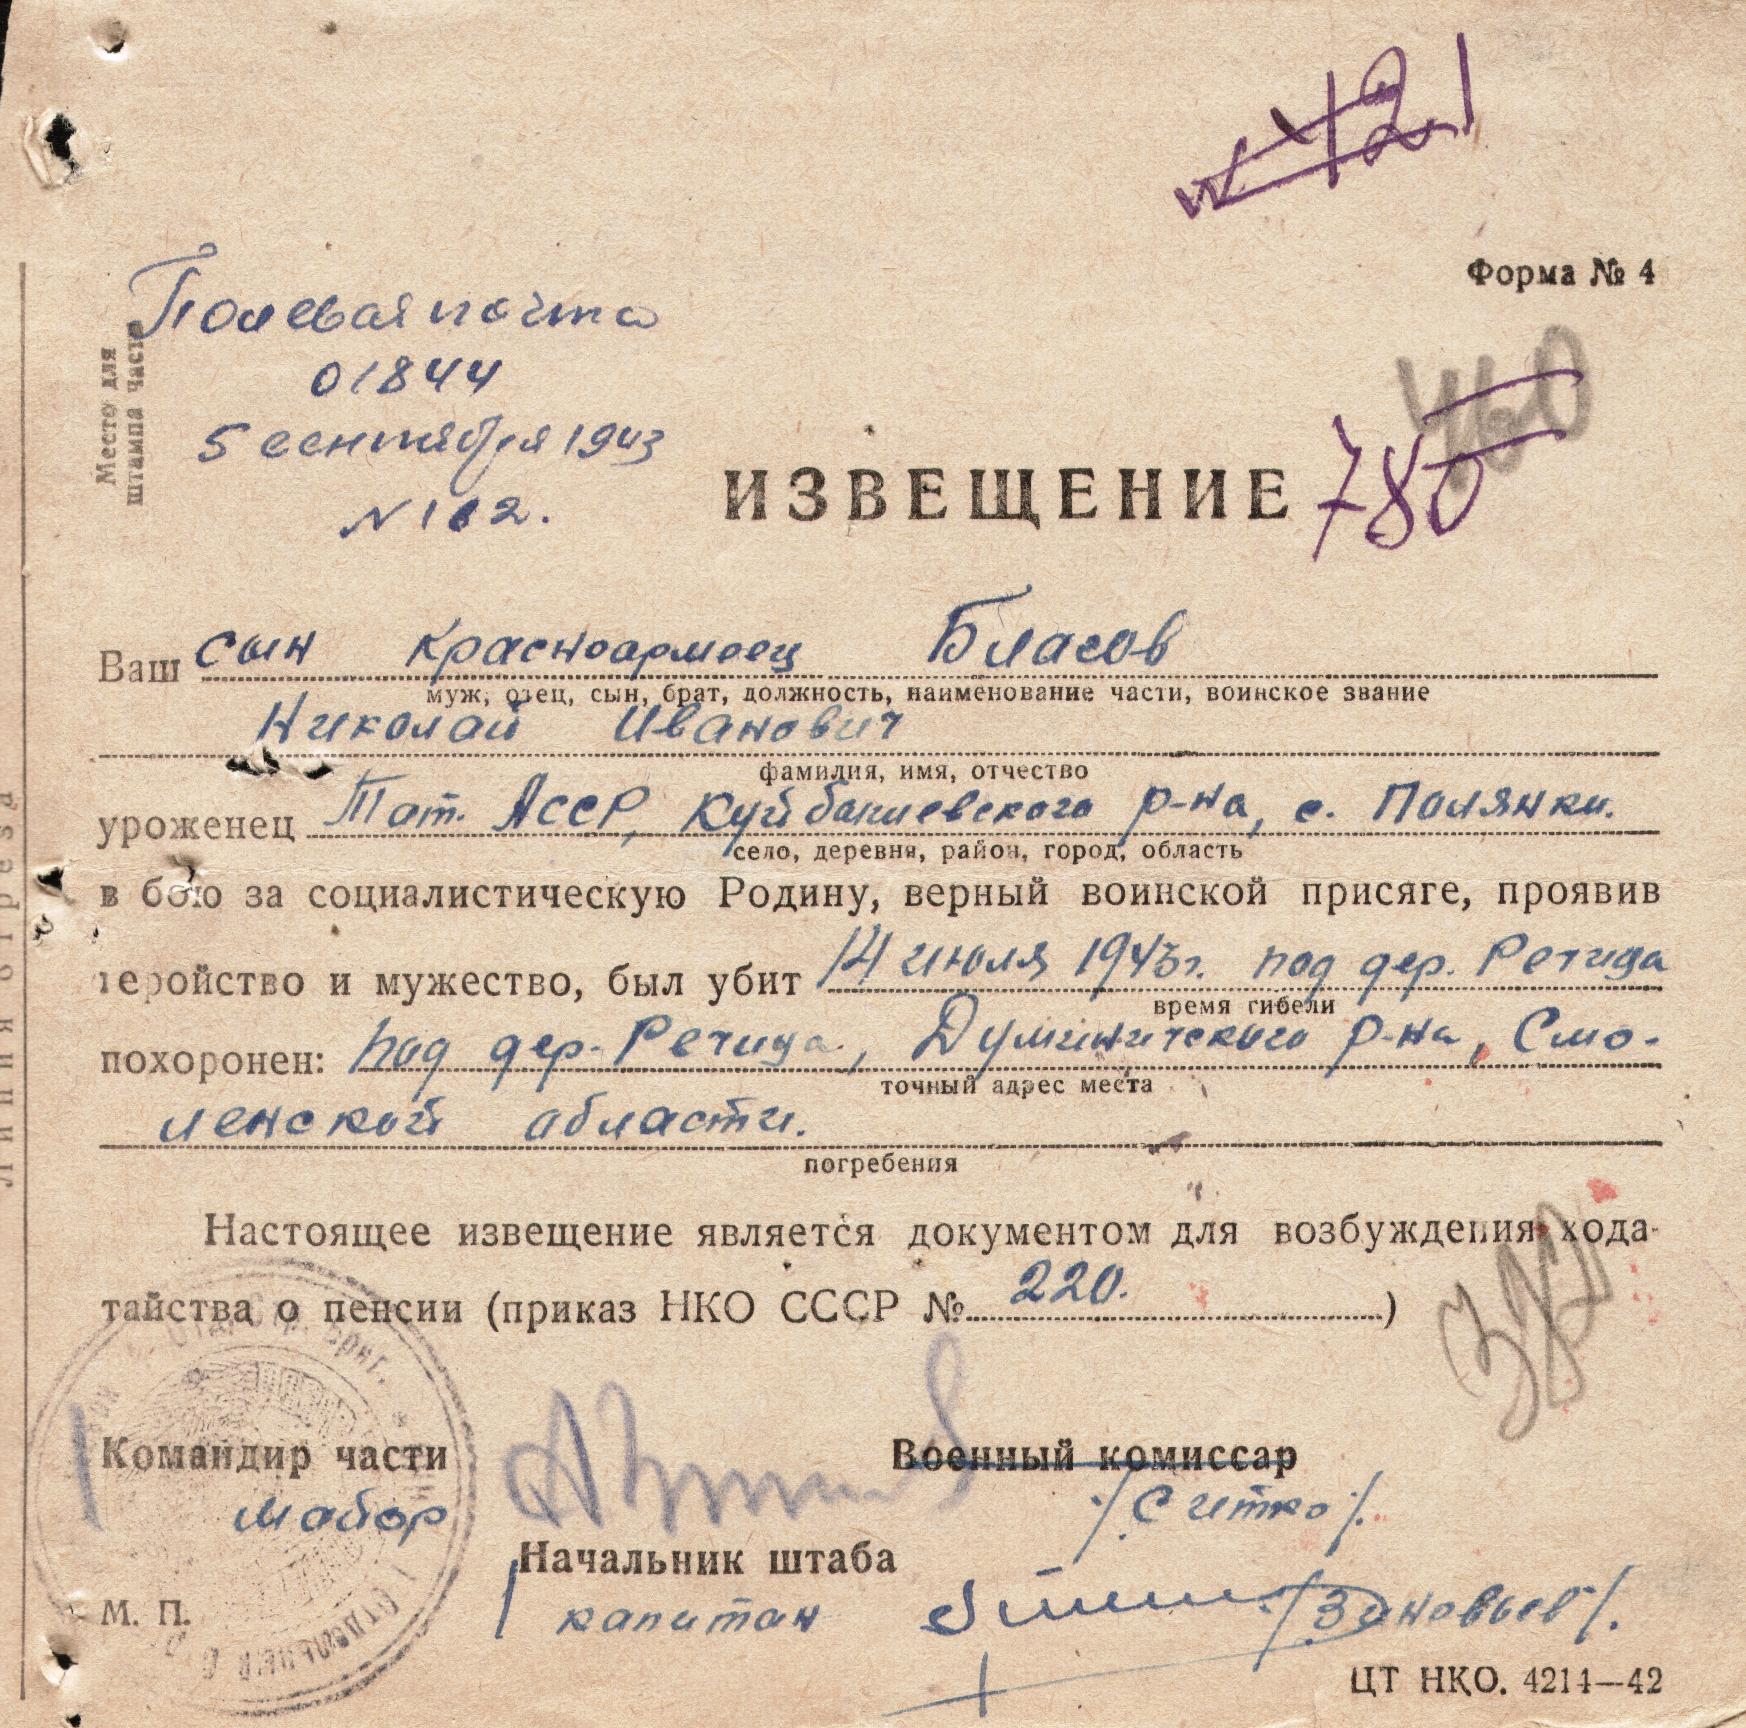 421
Форма № 4
Место для
штампа части
Полевая почта
01844
5 сентября 1943
N 162.
460
ИЗВЕЩЕНИЕ 780
Ваш сын красноармеец Власов
муж, отец, сын, брат, должность, наименование части, воинское звание
Николай Иванович
фамилия, имя, отчество
уроженец Тат. АССР, Куйбышевского р-на, с. Полянки.
село, деревня, район, город, область
в бою за социалистическую Родину, верный воинской присяге, проявив
геройство и мужество, был убит 14 июля 1943 г. под дер. Речица
время гибели
похоронен: под дер. Речица, Думиничского р-на, Смо-
точный адрес места
ленской области.
погребения
Настоящее извещение является документом для возбуждения хода-
тайства о пенсии (приказ НКО СССР № 220. )
Командир части
Военный комиссар
майор
/Ситко/.
Начальник штаба
капитан /Зиновьев/.
М. П.
ЦТ НКО. 4214—42
Линия отреза